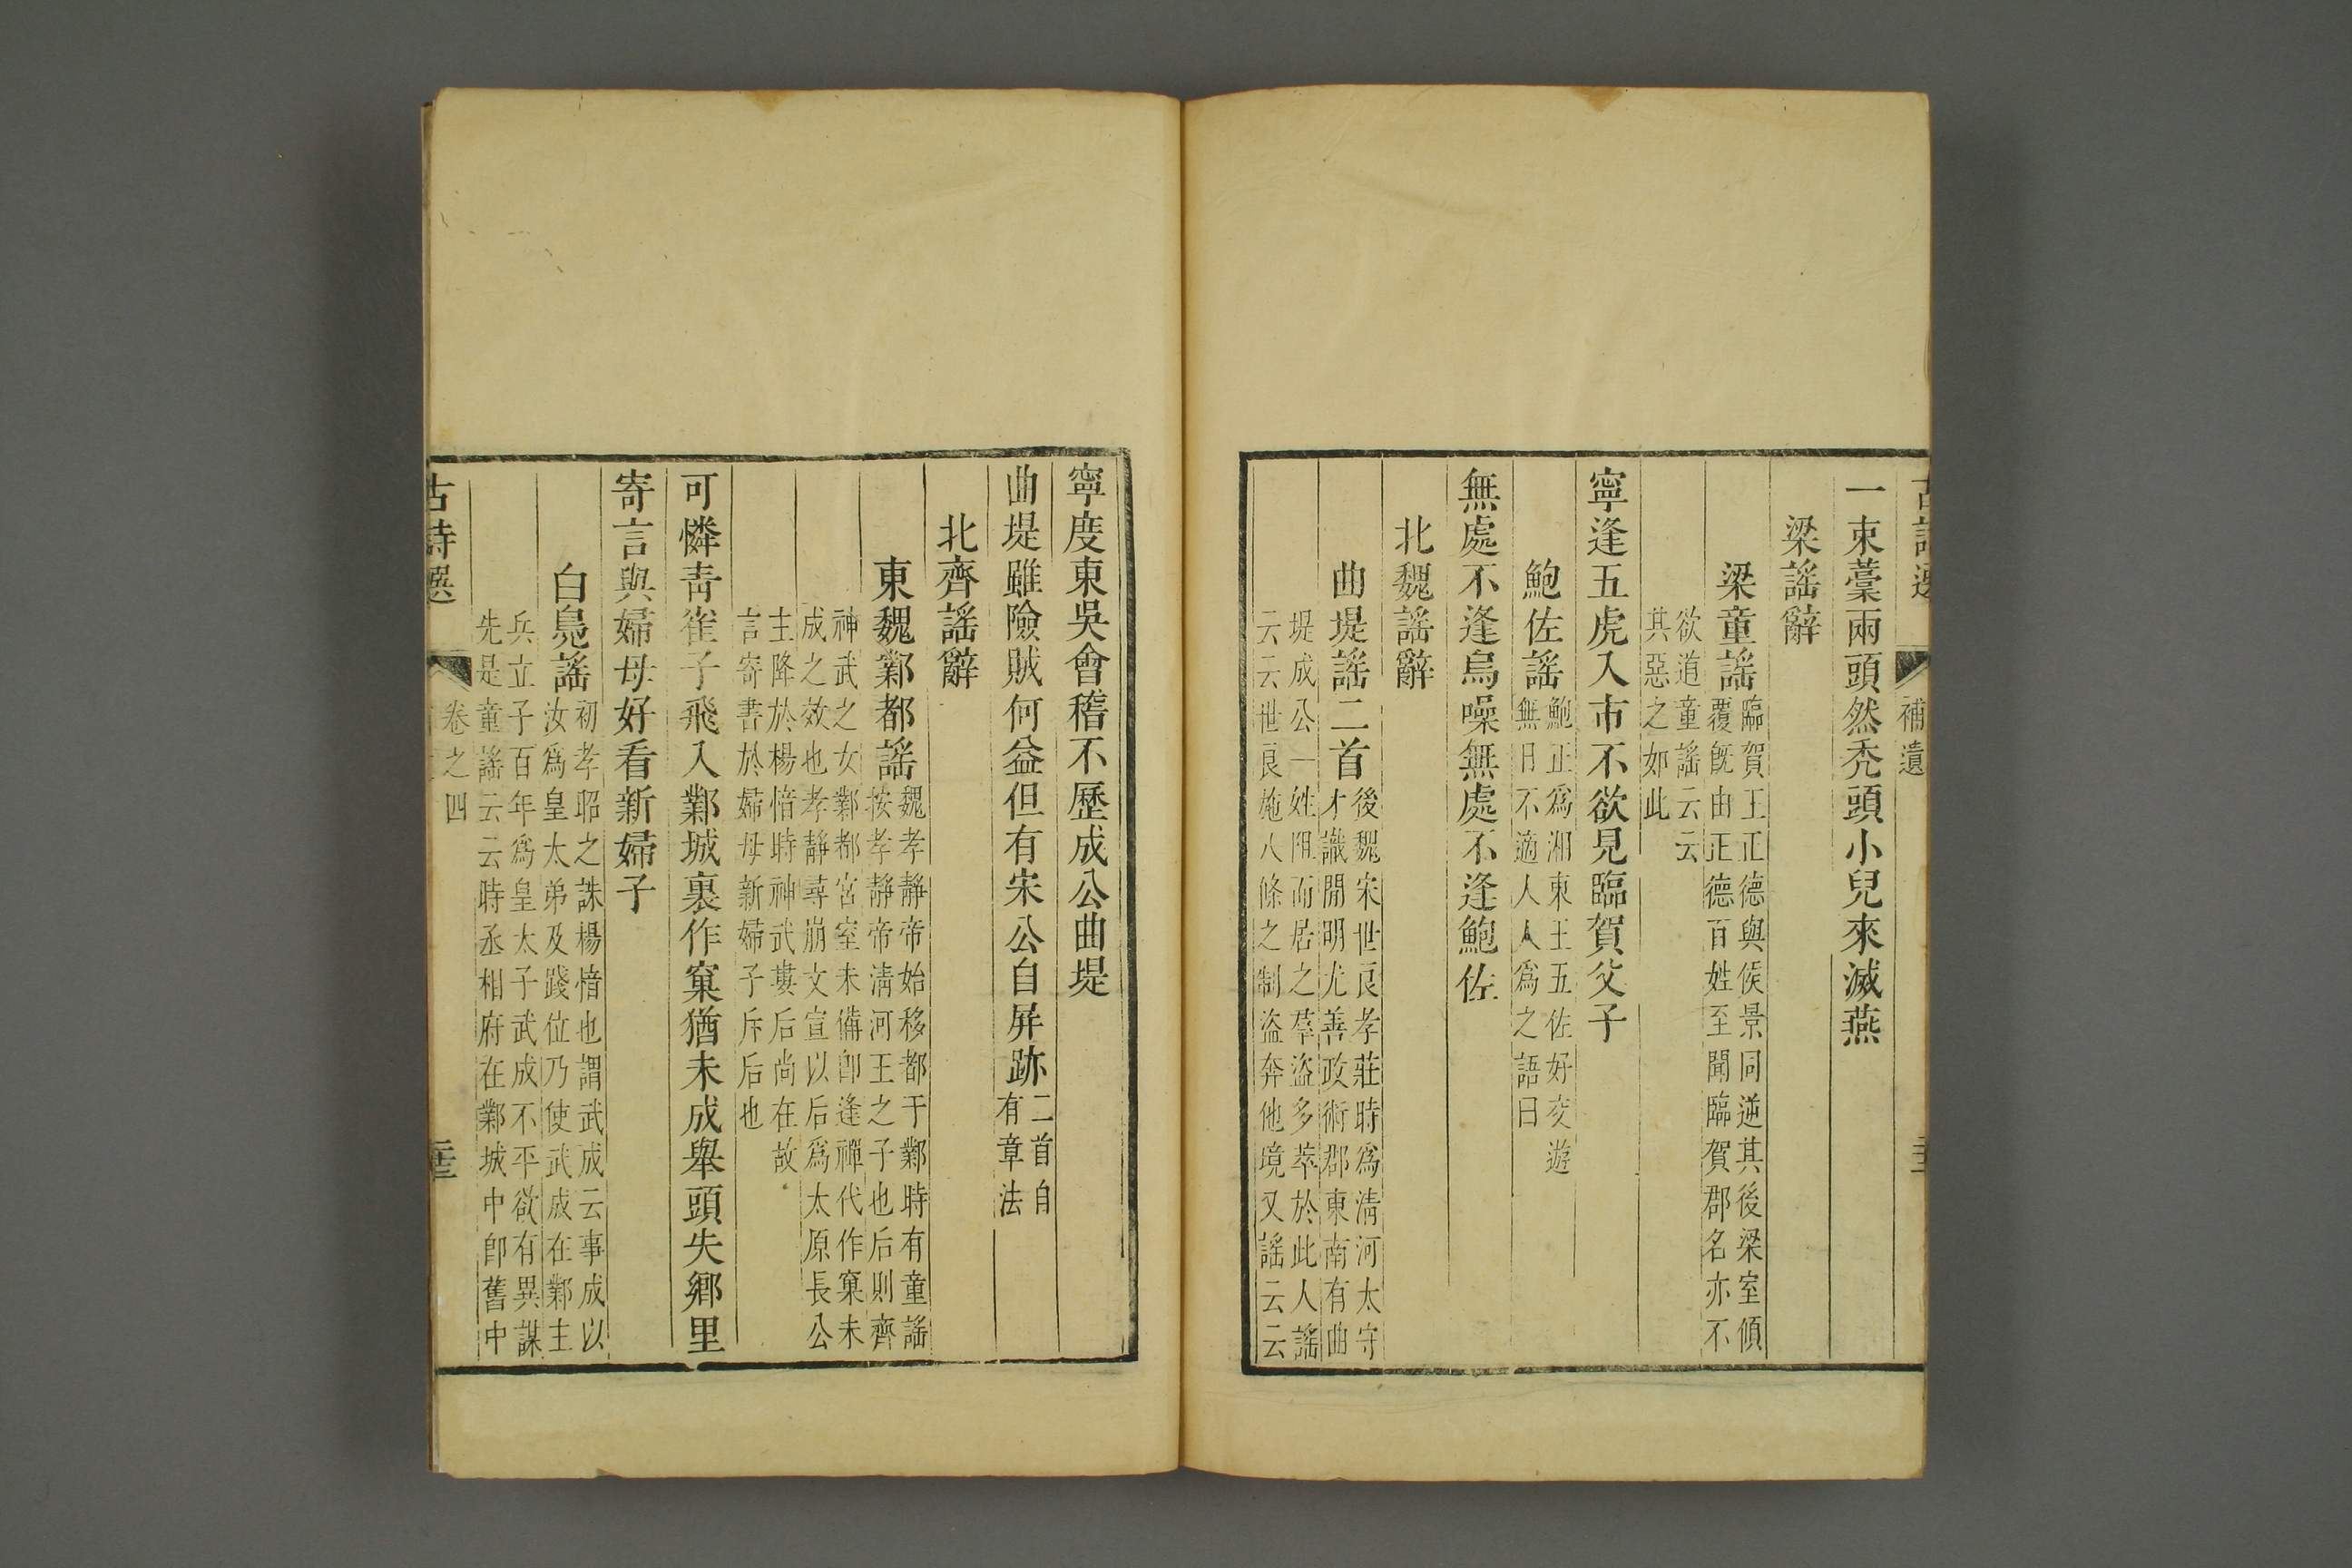 古詩選 補遺 二十三
一束藁兩頭然禿頭小兒來滅燕
梁謠辭
梁童謠 臨賀王正德與侯景同逆其後梁室傾
覆旣由正德百姓至聞臨賀郡名亦不
欲道童謠云云
其惡之如此
寧逢五虎入市不欲見臨賀父子
鮑佐謠 鮑正爲湘東王五佐好交遊
無日不適人人爲之語曰
無處不逢烏噪無處不逢鮑佐
北魏謠辭
曲堤謠二首 後魏宋世良孝莊時爲清河太守
才識閒明尤善政術郡東南有曲
堤成公一姓阻而居之羣盜多萃於此人謠
云云世良施八條之制盜奔他境又謠云云
寧度東吳會稽不歷成公曲堤
曲堤雖險賊何益但有宋公自屏跡 二首自
有章法
北齊謠辭
東魏鄴都謠 魏孝靜帝始移都于鄴時有童謠
按孝靜帝清河王之子也后則齊
神武之女鄴都宮室未備卽逢禪代作窠未
成之效也孝靜尋崩文宣以后爲太原長公
主降於楊愔時神武婁后尚在故
言寄書於婦母新婦子斥后也
可憐青雀子飛入鄴城裏作窠猶未成舉頭失鄉里
寄言與婦母好看新婦子
白鳧謠 初孝昭之誅楊愔也謂武成云事成以
汝爲皇太弟及踐位乃使武成在鄴主
兵立子百年爲皇太子武成不平欲有異謀
先是童謠云云時丞相府在鄴城中卽舊中
古詩選 卷之四